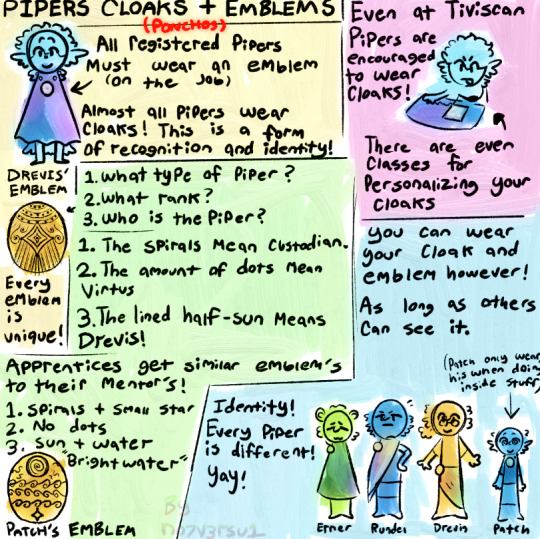 PIPERS CLOAKS + EMBLEMS
(PONCHOS)
All registered Pipers
Must wear an emblem
(on the job)
Almost all Pipers wear
Cloaks! This is a form
of recognition and identity!
Even at Tiviscan
Pipers are
encouraged
to wear
Cloaks!
There are even
Classes for
Personalizing your
cloaks
DREVIS'
EMBLEM
Every
emblem
is
unique!
1. what type of Piper?
2. what rank?
3. who is the Piper?
1. The spirals Mean Custodian.
2. The amount of dots Mean
Virtus
3. The lined half-sun Means
Drevis!
you can wear
your Cloak and
emblem however!
As long as others
Can see it.
Apprentices get similar emblem's
to their Mentor's!
1. Spirals + small star
2. No dots
3. Sun + water
"Brightwater"
PATCH'S EMBLEM
Identity!
Every Piper
is different!
Yay!
(Patch only wears
his when doing
inside stuff)
Erner Rundel Drevis Patch
By
no7v3rsu1